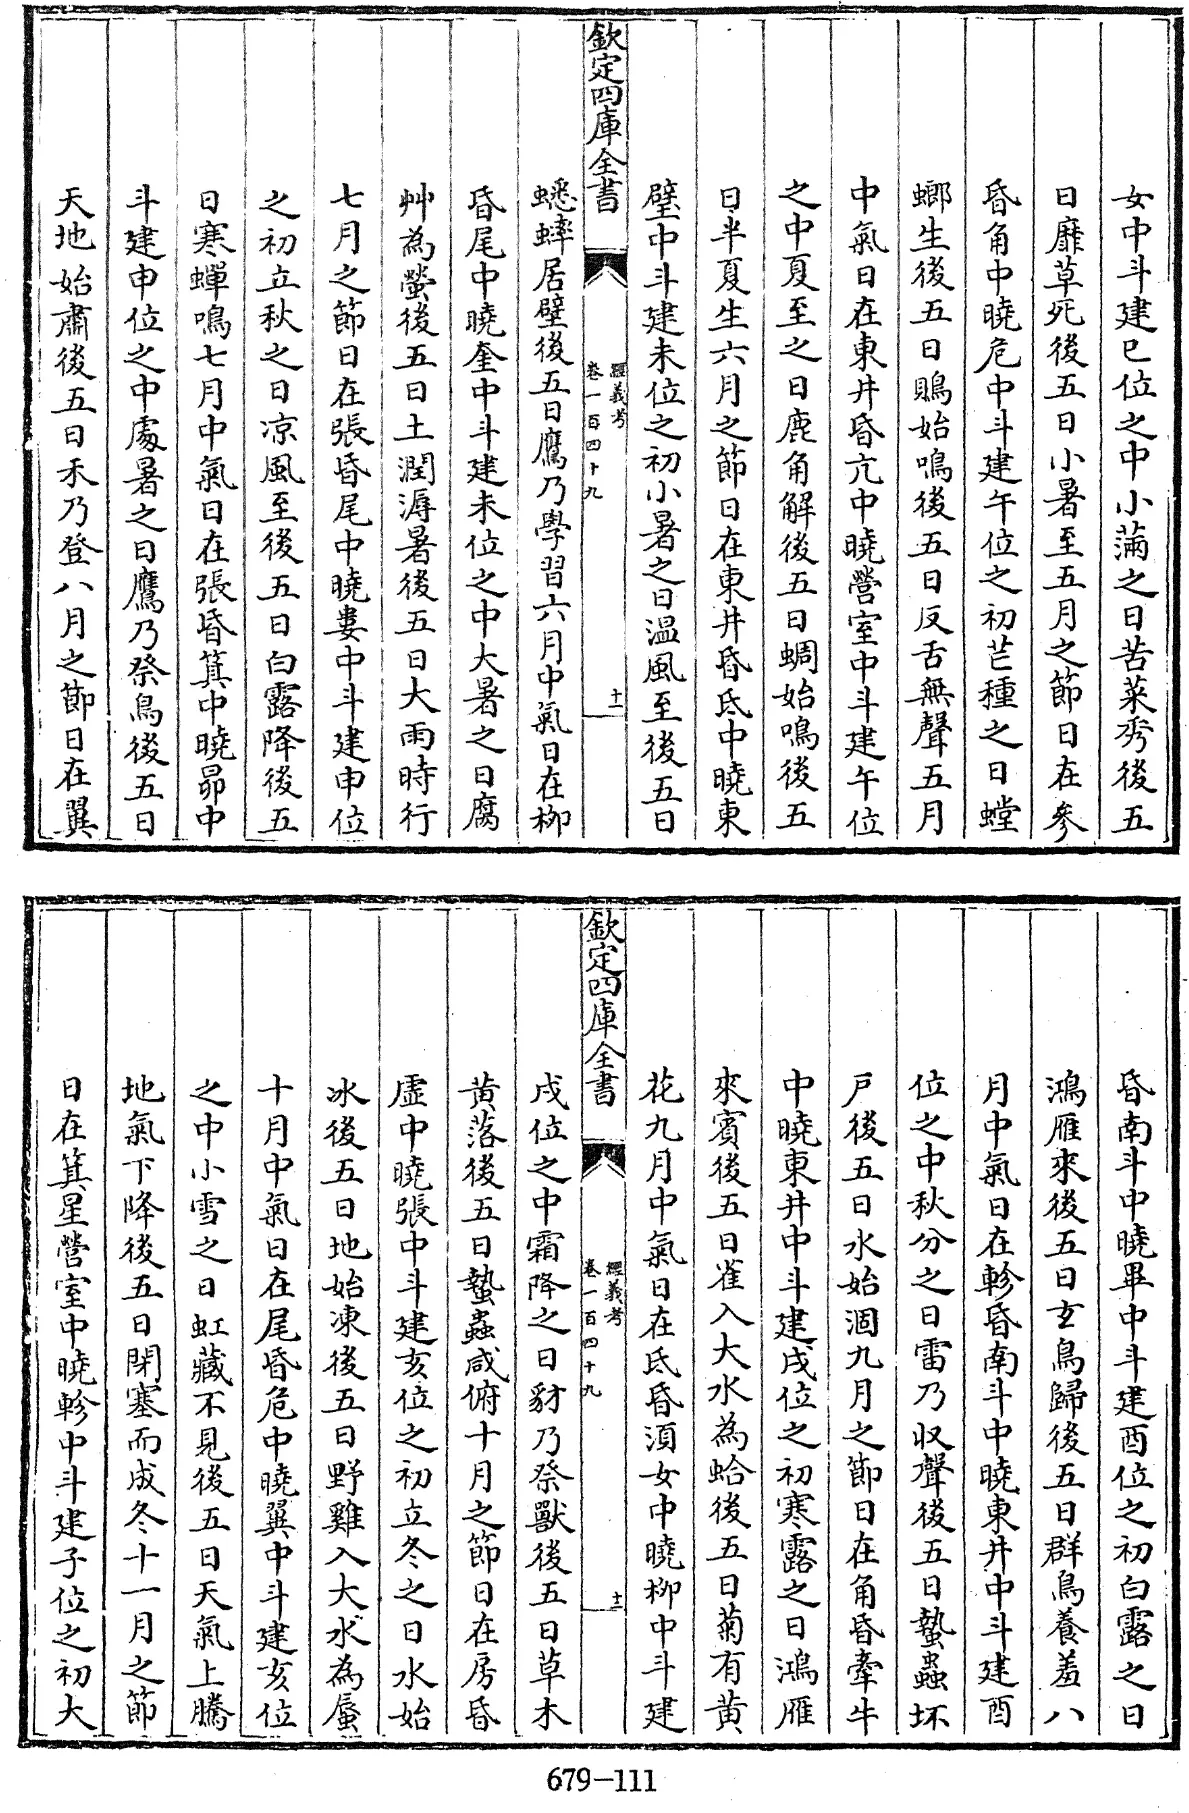 女中斗建巳位之中小滿之日苦菜秀後五
日靡草死後五日小暑至五月之節日在參
昏角中曉危中斗建午位之初芒種之日螳
螂生後五日鵙始鳴後五日反舌無聲五月
中氣日在東井昏亢中曉營室中斗建午位
之中夏至之日鹿角解後五日蜩始鳴後五
日半夏生六月之節日在東井昏氐中曉東
壁中斗建未位之初小暑之日温風至後五日
欽定四庫全書
經義考
卷一百四十九
十一
蟋蟀居壁後五日鷹乃學習六月中氣日在柳
昏尾中曉奎中斗建未位之中大暑之日腐
艸為螢後五日土潤溽暑後五日大雨時行
七月之節日在張昏尾中曉婁中斗建申位
之初立秋之日凉風至後五日白露降後五
日寒蟬鳴七月中氣日在張昏箕中曉昴中
斗建申位之中處暑之日鷹乃祭鳥後五日
天地始肅後五日禾乃登八月之節日在翼
昏南斗中曉畢中斗建酉位之初白露之日
鴻雁來後五日玄鳥歸後五日群鳥養羞八
月中氣日在軫昏南斗中曉東井中斗建酉
位之中秋分之日雷乃収聲後五日蟄蟲坏
戸後五日水始涸九月之節日在角昏牽牛
中曉東井中斗建戌位之初寒露之日鴻雁
來賓後五日雀入大水為蛤後五日菊有黄
花九月中氣日在氐昏湏女中曉柳中斗建
欽定四庫全書
經義考
卷一百四十九
十二
戌位之中霜降之日豺乃祭獸後五日草木
黄落後五日蟄蟲咸俯十月之節日在房昏
虚中曉張中斗建亥位之初立冬之日水始
冰後五日地始凍後五日野雞入大水為蜃
十月中氣日在尾昏危中曉翼中斗建亥位
之中小雪之日虹藏不見後五日天氣上騰
地氣下降後五日閉塞而成冬十一月之節
日在箕星營室中曉軫中斗建子位之初大
679-111